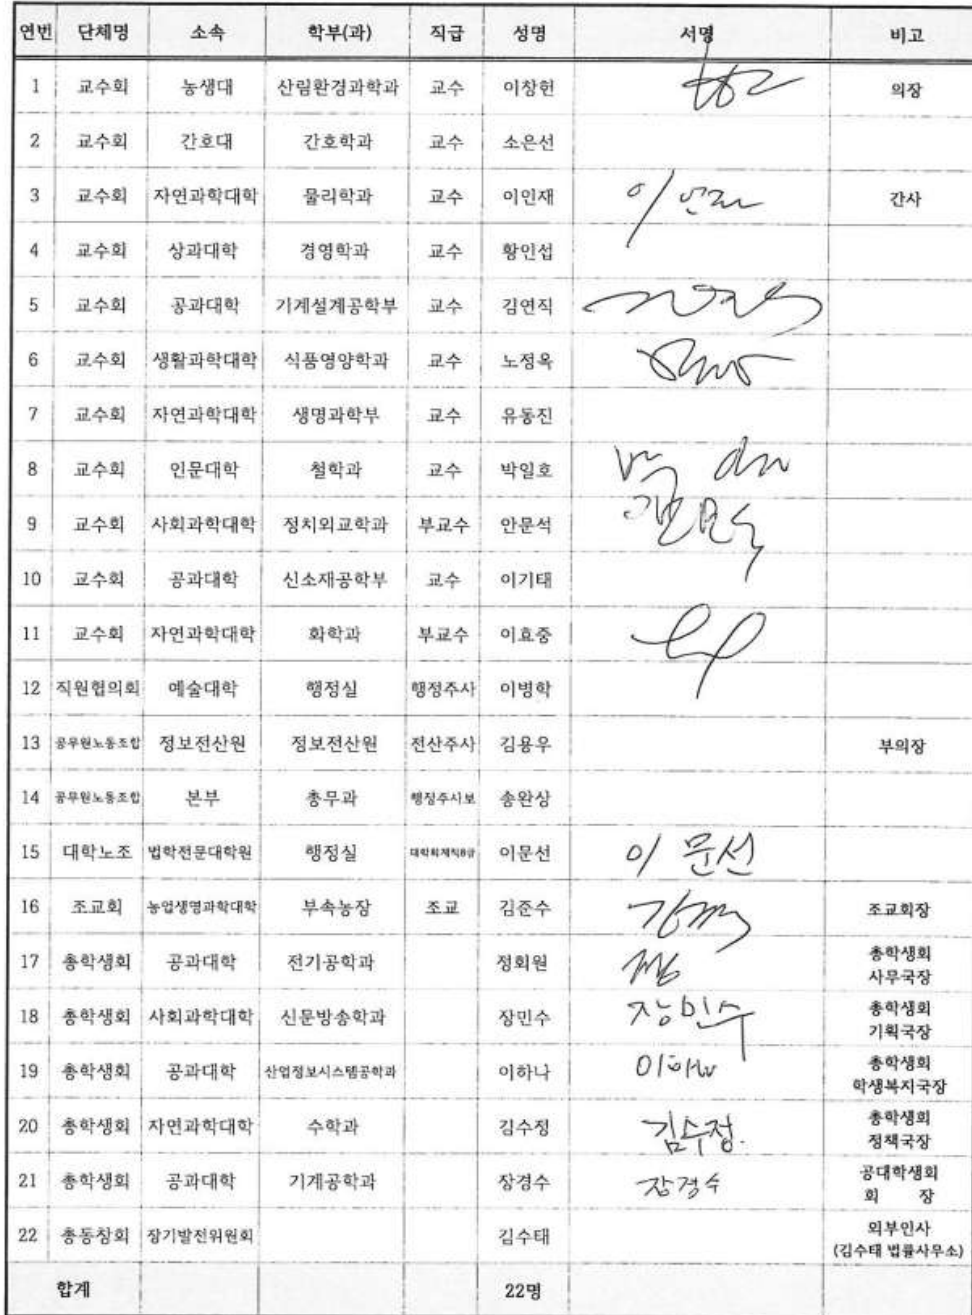 연번 단체명 소속 학부(과) 직급 성명 서명 비고
1 교수회 농생대 산림환경과학과 교수 이창헌 의장
2 교수회 간호대 간호학과 교수 소은선
3 교수회 자연과학대학 물리학과 교수 이인재 이인재 간사
4 교수회 상과대학 경영학과 교수 황인섭
5 교수회 공과대학 기계설계공학부 교수 김연직
6 교수회 생활과학대학 식품영양학과 교수 노정옥
7 교수회 자연과학대학 생명과학부 교수 유동진
8 교수회 인문대학 철학과 교수 박일호
9 교수회 사회과학대학 정치외교학과 부교수 안문석
10 교수회 공과대학 신소재공학부 교수 이기태
11 교수회 자연과학대학 화학과 부교수 이효중
12 직원협의회 예술대학 행정실 행정주사 이병학
13 공무원노동조합 정보전산원 정보전산원 전산주사 김용우 부의장
14 공무원노동조합 본부 총무과 행정주시보 송완상
15 대학노조 법학전문대학원 행정실 대학회계직8급 이문선 이문선
16 조교회 농업생명과학대학 부속농장 조교 김준수 조교회장
17 총학생회 공과대학 전기공학과 정회원 총학생회
사무국장
18 총학생회 사회과학대학 신문방송학과 장민수 장민수 총학생회
기획국장
19 총학생회 공과대학 산업정보시스템공학과 이하나 이하나 총학생회
학생복지국장
20 총학생회 자연과학대학 수학과 김수정 김수정. 총학생회
정책국장
21 총학생회 공과대학 기계공학과 장경수 장경수 공대학생회
회 장
22 총동창회 장기발전위원회 김수태 외부인사
(김수태 법률사무소)
합계 22명